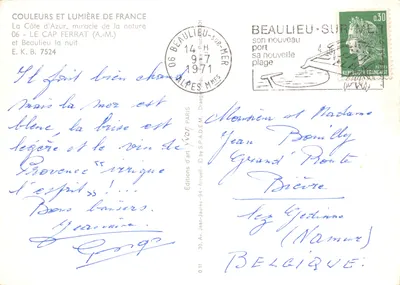 COULEURS ET LUMIÈRE DE FRANCE
La Côte d'Azur, miracle de la nature
06 - LE CAP FERRAT (A.-M.)
et Beaulieu la nuit
E. K. B. 7524
Il fait bien chaud
mais la mer est
bleue, la brise est
légère et le vin de
Provence "irrigue
l'esprit" !...
Bons baisers.
06 BEAULIEU-SUR-MER
14 H
9-7
1971
ALPES MMES
BEAULIEU-SUR-MER
son nouveau
port
sa nouvelle
plage
0,50
REPUBLIQUE FRANCAISE
Editions d'art YVON PARIS
Monsieur et Madame
Jean
Grand' Route
Bièvre
lez Gedinne
(Namur)
BELGIQUE.